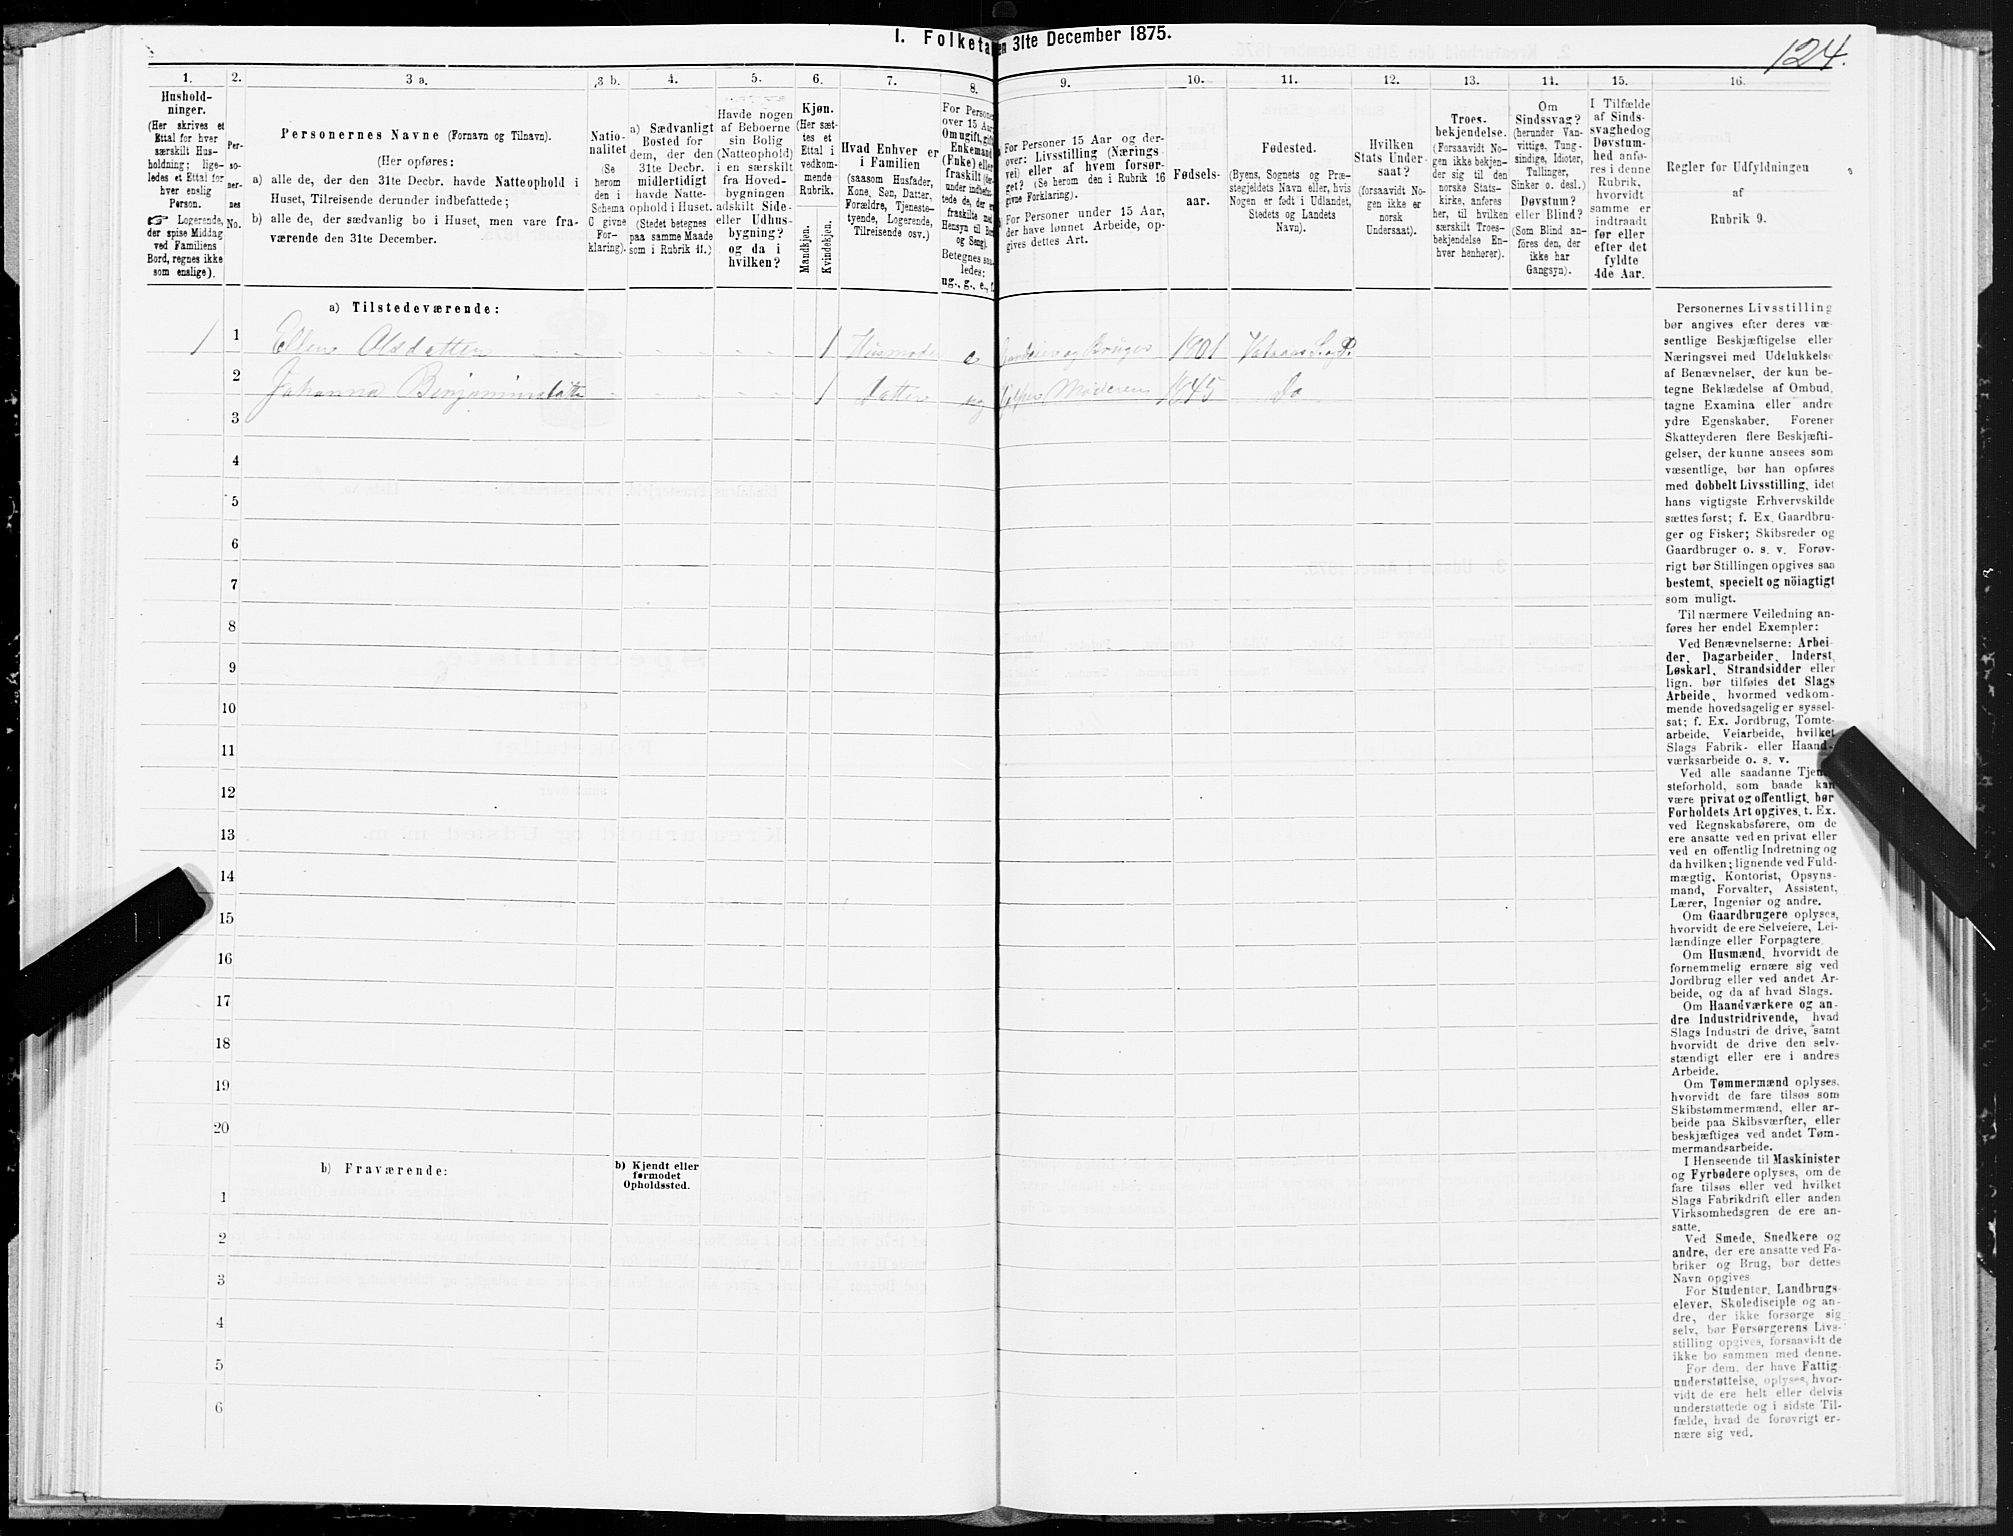 I. Folketa en 31te December 1875.
124.
1.
2.
3 a.
3 b.
4.
5.
6.
7.
8.
9.
10.
11.
12.
13.
14.
15.
16.
Hushold-
ninger.
(Her skrives et
Ettal for hver
særskilt Hus-
holdning; lige-
ledes et Ettal for
hver enslig
Person.
☞ Logerende,
der spise Middag
ved Familiens
Bord, regnes ikke
som enslige).
Per-
so-
ner-
nes
No.
Personernes Navne (Fornavn og Tilnavn).
(Her opføres:
a) alle de, der den 31te Decbr. havde Natteophold i
Huset, Tilreisende derunder indbefattede;
b) alle de, der sædvanlig bo i Huset, men vare fra-
værende den 31te December.
Natio-
nalitet
(Se
herom
den i
Schema
G givne
For-
klaring).
a) Sædvanligt
Bosted for
dem, der den
31te Decbr.
midlertidigt
havde Natte-
ophold i Huset.
(Stedet betegnes
paa samme Maade
som i Rubrik 11.)
Havde nogen
af Beboerne
sin Bolig
(Natteophold)
i en særskilt
fra Hoved-
bygningen
adskilt Side-
eller Udhus-
bygning?
og da i
hvilken?
Kjøn.
(Her sæt-
tes et
Ettal i
vedkom-
mende
Rubrik.
Mandkjøn.
Kvindekjøn.
Hvad Enhver er
i Familien
(saasom Husfader,
Kone, Søn, Datter,
Forældre, Tjeneste-
tyende, Logerende,
Tilreisende osv.)
For Person
over 15 Aar
Om ugift, gift
Enkemand
(Enke) eller
fraskilt
Betegnes saa
ledes:
ug., g., e., f.
For Personer 15 Aar og der-
over: Livsstilling (Nærings
vei) eller af hvem forsør-
get? (Se herom den i Rubrik 16
givne Forklaring).
For Personer under 15 Aar,
der have lønnet Arbeide, op-
gives dettes Art.
Fødsels-
aar.
Fødested.
(Byens, Sognets og Præ-
stegjeldets Navn eller, hvis
Nogen er født i Udlandet,
Stedets og Landets
Navn).
Hvilken
Stats Under-
saat?
(forsaavidt No-
gen ikke er
norsk
Undersaat).
Troes-
bekjendelse.
(Forsaavidt No-
gen ikke bekjen-
der sig til den
norske Stats-
kirke, anføres
her, til hvilken
særskilt Troes-
bekjendelse En-
hver henhører).
Om
Sindssvag?
(herunder Van-
vittige, Tung-
sindige, Idioter,
Tullinger,
Sinker o. desl.)
Døvstum?
eller Blind?
(Som Blind an-
føres den, der
ikke har
Gangsyn).
I Tilfælde
af Sinds-
svaghed og
Døvstum-
hed anfø-
res i denne
Rubrik,
hvorvidt
samme er
indtraadt
før eller
efter det
fyldte
4de Aar.
Regler for Udfyldningen
af
Rubrik 9.
a) Tilstedeværende:
1 1 Ellen Olsdatter 1 Husmoder e Gaardeier og Bruger 1801 S. og P.
2 Johanna Benjaminsdatter 1 datter ug hjelper Moderen 1845 Do
3
4
5
6
7
8
9
10
11
12
13
14
15
16
17
18
19
20
b) Fraværende:
b) Kjendt eller
formodet
Opholdssted.
1
2
3
4
5
6
Personernes Livsstilling
bør angives efter deres væ-
sentlige Beskjæftigelse eller
Næringsvei med Udelukkelse
af Benævnelser, der kun be-
tegne Beklædelse af Ombud,
tagne Examina eller andre
ydre Egenskaber. Forener
Skatteyderen flere Beskjæfti-
gelser, der kunne ansees som
væsentlige, bør han opføres
med dobbelt Livsstilling, idet
hans vigtigste Erhvervskilde
sættes først; f. Ex. Gaardbru-
ger og Fisker; Skibsreder og
Gaardbruger o. s. v. Forøv-
rigt bør Stillingen opgives saa
bestemt, specielt og nöiagtigt
som muligt.
Til nærmere Veiledning an-
føres her endel Exempler:
Ved Benævnelserne: Arbei-
der, Dagarbeider, Inderst,
Løskarl, Strandsidder eller
lign. bør tilføies det Slags
Arbeide, hvormed vedkom-
mende hovedsagelig er syssel-
sat; f. Ex. Jordbrug, Tomte-
arbeide, Veiarbeide, hvilket
Slags Fabrik- eller Haand-
værksarbeide o. s. v.
Ved alle saadanne Tjene-
steforhold, som baade kan
være privat og offentligt, bør
Forholdets Art opgives, t. Ex.
ved Regnskabsførere, om de
ere ansatte ved en privat eller
ved en offentlig Indretning og
da hvilken; lignende ved Fuld-
mægtig, Kontorist, Opsyns-
mand, Forvalter, Assistent,
Lærer, Ingeniør og andre.
Om Gaardbrugere oplyses,
hvorvidt de ere Selveiere, Lei-
lændinge eller Forpagtere.
Om Husmænd, hvorvidt de
fornemmelig ernære sig ved
Jordbrug eller ved andet Ar-
beide, og da af hvad Slags.
Om Haandværkere og an-
dre Industridrivende, hvad
Slags Industri de drive, samt
hvorvidt de drive den selv-
stændigt eller ere i andres
Arbeide.
Om Tømmermænd oplyses,
hvorvidt de fare tilsøs som
Skibstømmermænd, eller ar-
beide paa Skibsværfter, eller
beskjæftiges ved andet Tøm-
mermandsarbeide.
I Henseende til Maskinister
og Fyrbødere oplyses, om de
fare tilsøs eller ved hvilket
Slags Fabrikdrift eller anden
Virksomhedsgren de ere an-
satte.
Ved Smede, Snedkere og
andre, der ere ansatte ved Fa-
briker og Brug, bør dettes
Navn opgives
For Studenter, Landbrugs-
elever, Skoledisciple og an-
dre, der ikke forsørge sig
selv, bør Forsørgerens Livs-
stilling opgives, forsaavidt de
ikke bo sammen med denne.
For dem, der have Fattig-
understøttelse, oplyses, hvor-
vidt de ere helt eller delvis
understøttede og i sidste Til-
fælde, hvad de forøvrigt er-
nære sig ved.